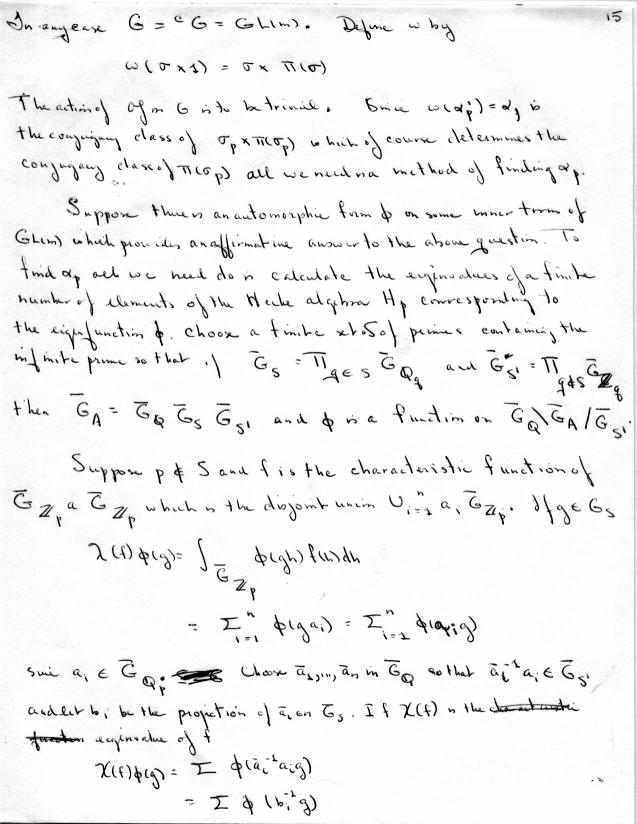 15
In any case G = ᶜG = GL(m). Define ω by
ω(σ × 1) = σ × π(σ)
The action of on G is to be trivial. Since ω(α'ₚ) = α, is
the conjugacy class of σₚ × π(σₚ) which of course determines the
conjugacy class of π(σₚ) all we need is a method of finding αₚ.
Suppose there is an automorphic form ϕ on some inner form of
GL(m) which provides an affirmative answer to the above question. To
find αₚ all we need do is calculate the eigenvalues of a finite
number of elements of the Hecke algebra Hₚ corresponding to
the eigenfunction ϕ. Choose a finite set S of primes containing the
infinite prime so that if G̅_S = Π_{q∈S} G̅_{Q_q} and G̅_{S'} = Π_{q∉S} G̅_{Z_q}
then G̅_A = G̅_Q G̅_S G̅_{S'} and ϕ is a function on G̅_Q\G̅_A/G̅_{S'}.
Suppose p ∉ S and f is the characteristic function of
G̅_{Z_p} a G̅_{Z_p} which is the disjoint union U_{i=1}^n a_i G̅_{Z_p}. If g ∈ G_S
λ(f)ϕ(g) = ∫_{G̅_{Z_p}} ϕ(gh) f(h) dh
= Σ_{i=1}^n ϕ(g a_i) = Σ_{i=1}^n ϕ(a_i g)
since a_i ∈ G̅_{Q_p}. Choose a̅_1, ..., a̅_n in G̅_Q so that a̅_i^{-1} a_i ∈ G̅_{S'}
and let b_i be the projection of a̅_i on G̅_S. If χ(f) is the
eigenvalue of f
χ(f)ϕ(g) = Σ ϕ(a̅_i^{-1} a_i g)
= Σ ϕ(b_i^{-1} g)